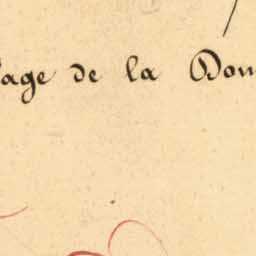 age de la Dou